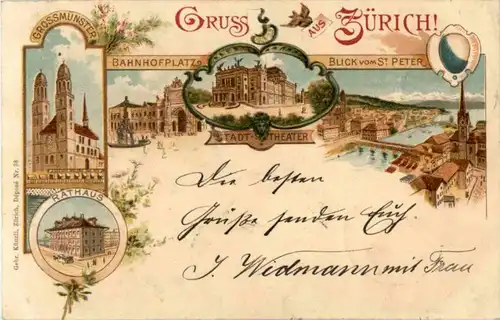 GRUSS AUS ZÜRICH!
GROSSMÜNSTER
BAHNHOFPLATZ
BLICK VOM ST PETER
STADT-THEATER
RATHAUS
Gebr. Künzli, Zürich, Déposé Nr. 78
Die besten
Grüße senden Euch.
J. Widmann mit Frau